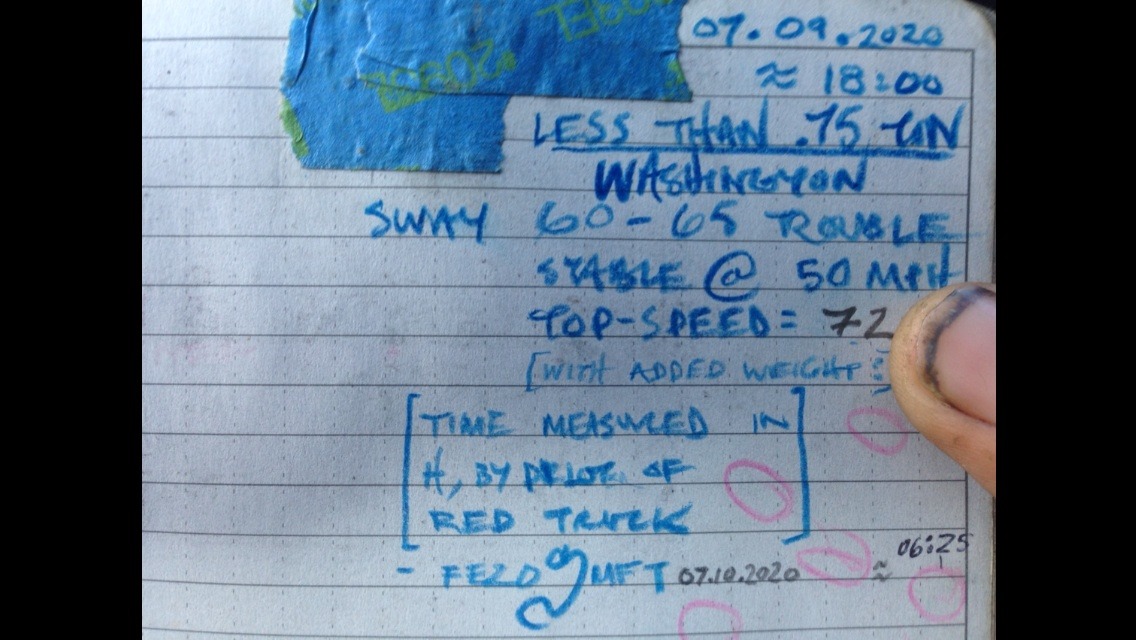 07.09.2020
≈ 18:00
LESS THAN .75 TIN
WASHINGTON
SWAY 60-65 TROUBLE
STABLE @ 50 MPH
TOP-SPEED = 72
[WITH ADDED WEIGHT
[TIME MEASURED IN
H, BY PILOT OF
RED TRUCK]
07.10.2020 ≈ 06:25